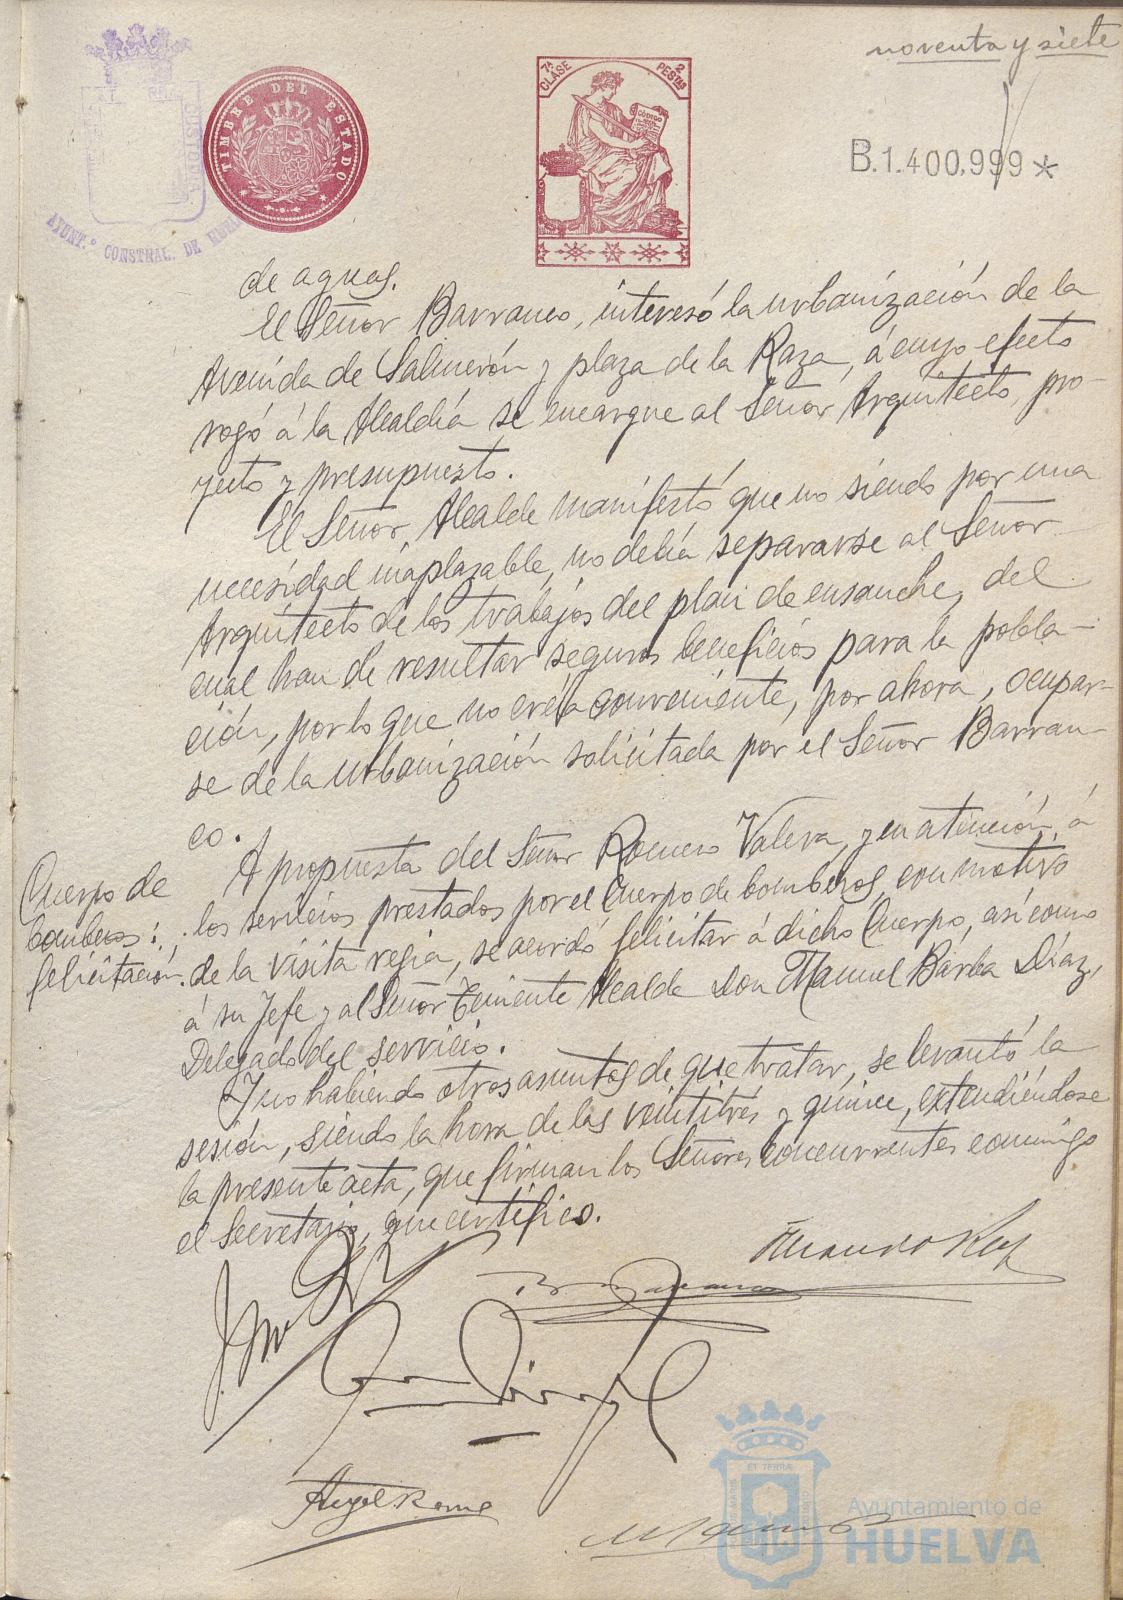 noventa y siete
AYUNT.º CONSTNAL. DE
TIMBRE DEL ESTADO
7ª CLASE
2 PESTAS
CÓDIGO
B.1.400.999*
de aguas.
El Señor Barranco, interesó la urbanización de la
Avenida de Salmerón y plaza de la Raza, á cuyo efecto
rogó á la Alcaldía se encargue al Señor Arquitecto, pro-
yecto y presupuesto.
El Señor Alcalde manifestó que no siendo por una
necesidad inaplazable, no debía separarse al Señor
Arquitecto de los trabajos del plan de ensanche, del
cual han de resultar seguros beneficios para la pobla-
ción, por lo que no creía conveniente, por ahora, ocupar-
se de la urbanización solicitada por el Señor Barran-
co.
Cuerpo de
bomberos:
felicitación.
A propuesta del Señor Romero Valera, y en atención á
los servicios prestados por el Cuerpo de bomberos, con motivo
de la visita regia, se acordó felicitar á dicho Cuerpo, así como
á su Jefe y al Señor Teniente Alcalde Don Manuel Bárba Díaz,
Delegado del servicio.
Y no habiendo otros asuntos de que tratar, se levantó la
sesión, siendo la hora de las veintitrés y quince, extendiéndose
la presente acta, que firman los Señores concurrentes conmigo
el Secretario, que certifico.
Ayuntamiento de
HUELVA